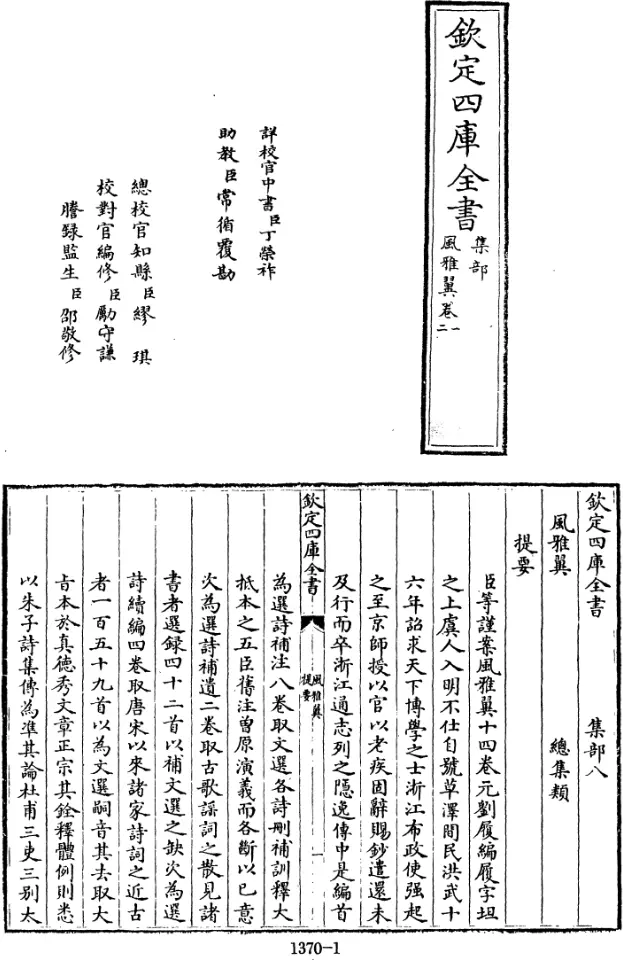 欽定四庫全書
集部
風雅翼卷一二
詳校官中書臣丁榮祚
助教臣常循覆勘
總校官知縣臣繆琪
校對官編修臣勵守謙
謄録監生臣邵敬修
欽定四庫全書 集部八
風雅翼 總集類
提要
臣等謹案風雅翼十四卷元劉履編履字坦
之上虞人入明不仕自號草澤閒民洪武十
六年詔求天下博學之士浙江布政使强起
之至京師授以官以老疾固辭賜鈔遣還未
及行而卒浙江通志列之隱逸傳中是編首
欽定四庫全書
風雅翼
提要
一
為選詩補注八卷取文選各詩刪補訓釋大
抵本之五臣舊注曽原演義而各斷以已意
次為選詩補遺二卷取古歌謡詞之散見諸
書者選録四十二首以補文選之缺次為選
詩續編四卷取唐宋以來諸家詩詞之近古
者一百五十九首以為文選嗣音其去取大
㫖本於真德秀文章正宗其銓釋體例則悉
以朱子詩集傳為凖其論杜甫三吏三别太
1370-1